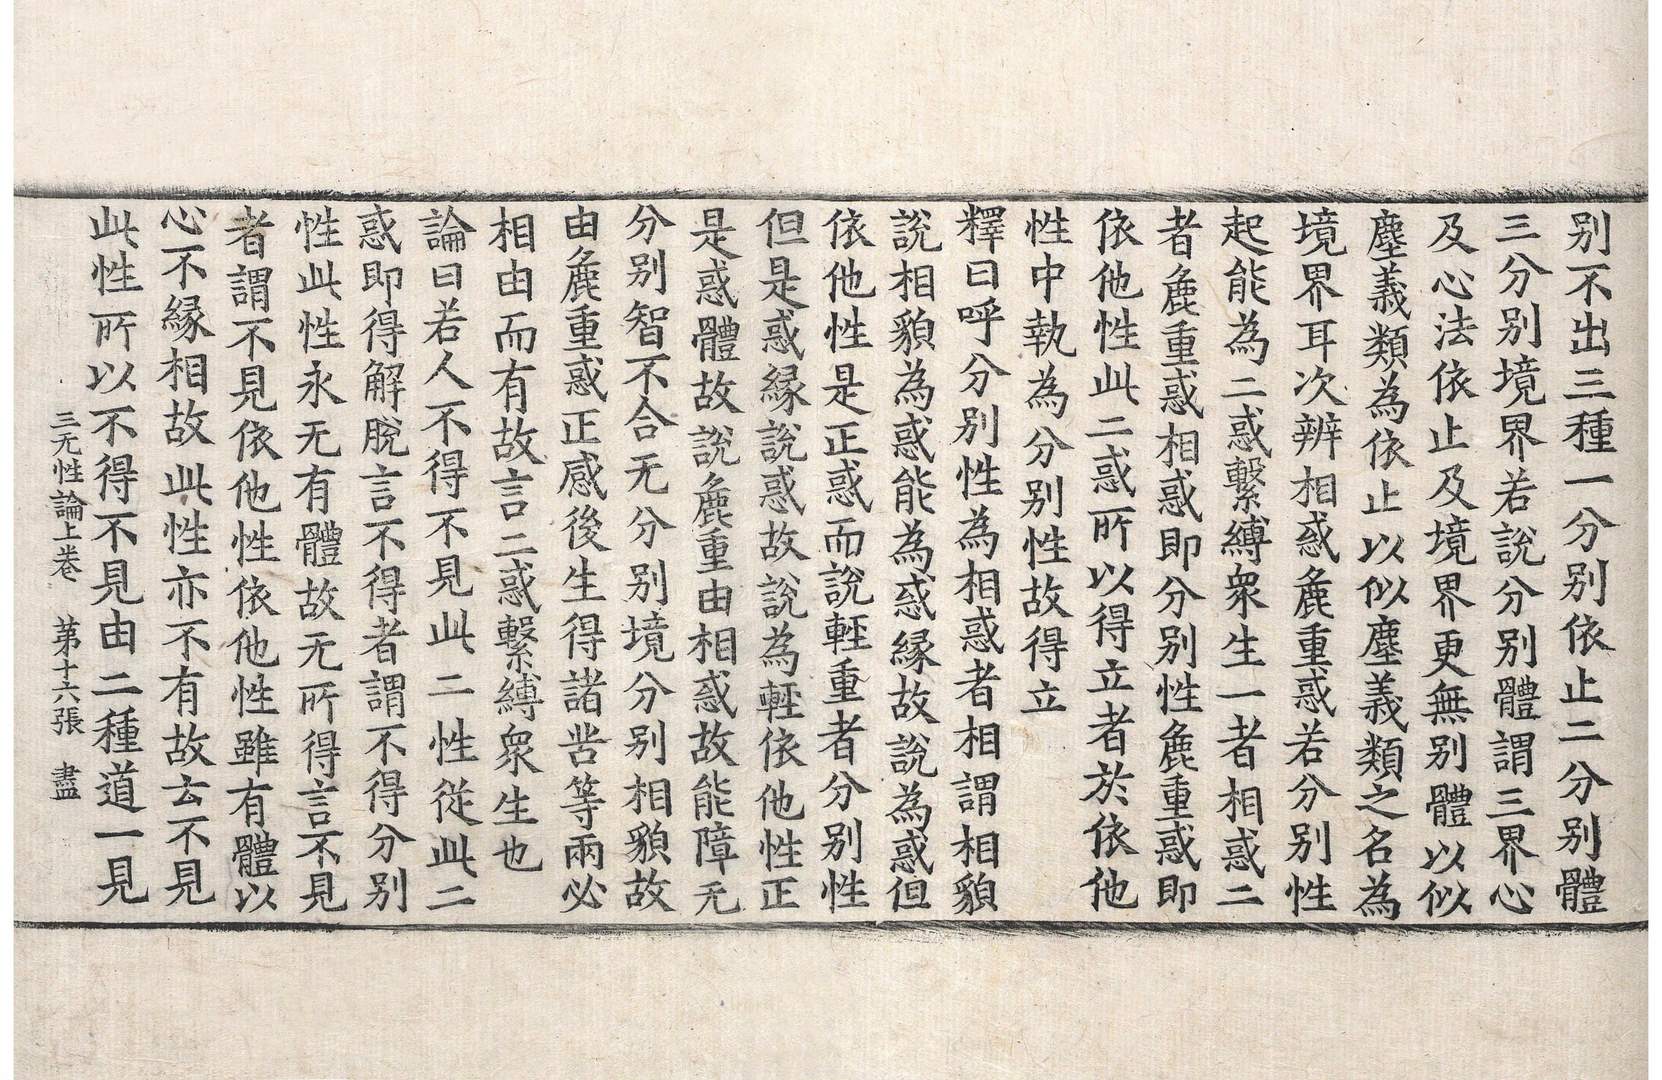 别不出三種一分别依止二分别體
三分别境界若說分别體謂三界心
及心法依止及境界更無别體以似
塵義類為依止以似塵義類之名為
境界耳次辨相惑麁重惑若分别性
起能為二惑繫縛衆生一者相惑二
者麁重惑相惑即分别性麁重惑即
依他性此二惑所以得立者於依他
性中執為分别性故得立
釋曰呼分别性為相惑者相謂相貌
說相貌為惑能為惑縁故說為惑但
依他性是正惑而說輕重者分别性
但是惑縁說惑故說為輕依他性正
是惑體故說麁重由相惑故能障无
分别智不合无分别境分别相貌故
由麁重惑正感後生得諸苦等兩必
相由而有故言二惑繫縛衆生也
論曰若人不得不見此二性從此二
惑即得解脫言不得者謂不得分别
性此性永无有體故无所得言不見
者謂不見依他性依他性雖有體以
心不縁相故此性亦不有故云不見
此性所以不得不見由二種道一見
三无性論上卷　第十六張　盡